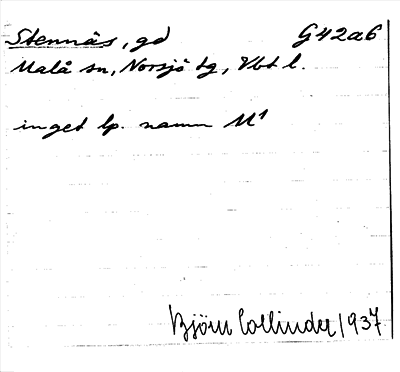 Stennäs, gd G42a6
Malå sn, Norsjö tg, Vbt l.
inget lp. namn M¹
Björn Collinder 1937